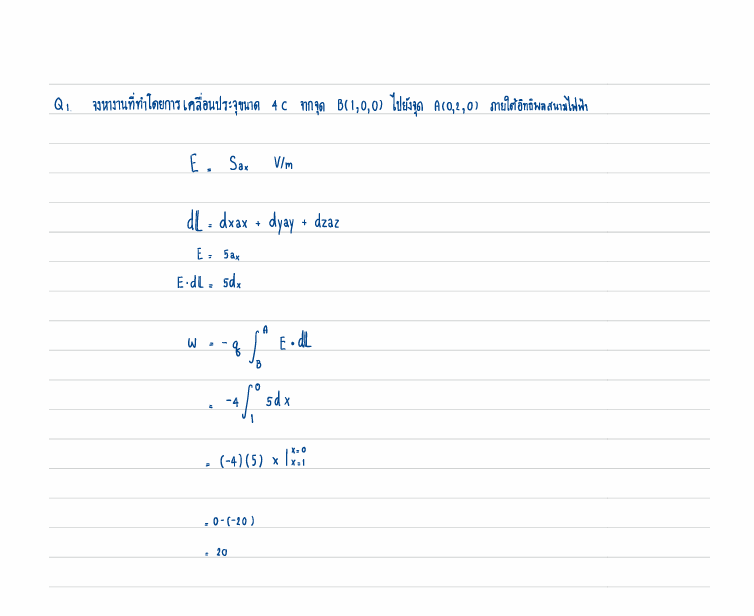 Q1. จงหางานที่ทำโดยการเคลื่อนประจุขนาด 4 C จากจุด B(1,0,0) ไปยังจุด A(0,2,0) ภายใต้อิทธิพลสนามไฟฟ้า
E = 5ax V/m
dL = dxax + dyay + dzaz
E = 5ax
E·dL = 5dx
W = -q ∫_B^A E·dL
= -4 ∫_1^0 5dx
= (-4)(5) x |_{x=1}^{x=0}
= 0-(-20)
= 20